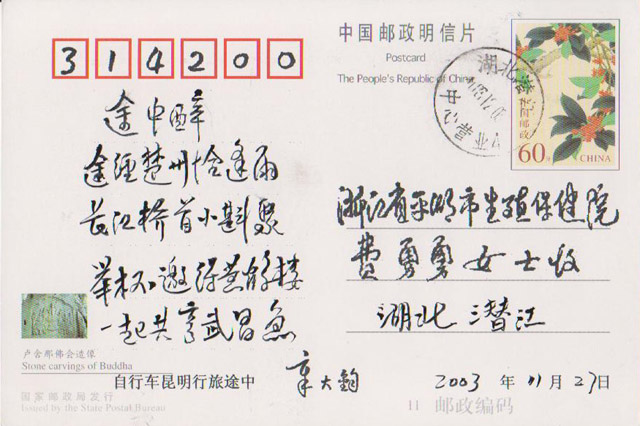 314200
中国邮政明信片
Postcard
The People's Republic of China
60分
CHINA
途中醉
途经楚州恰逢雨
长江桥首小斟聚
举杯邀得黄鹤楼
一起共享武昌鱼
浙江省平湖市生殖保健院
费勇勇女士收
湖北 潜江
卢舍那佛会造像
Stone carvings of Buddha
自行车昆明行旅途中
章大钧
2003 年 11 月 27 日
国家邮政局发行
Issued by the State Postal Bureau
11 邮政编码